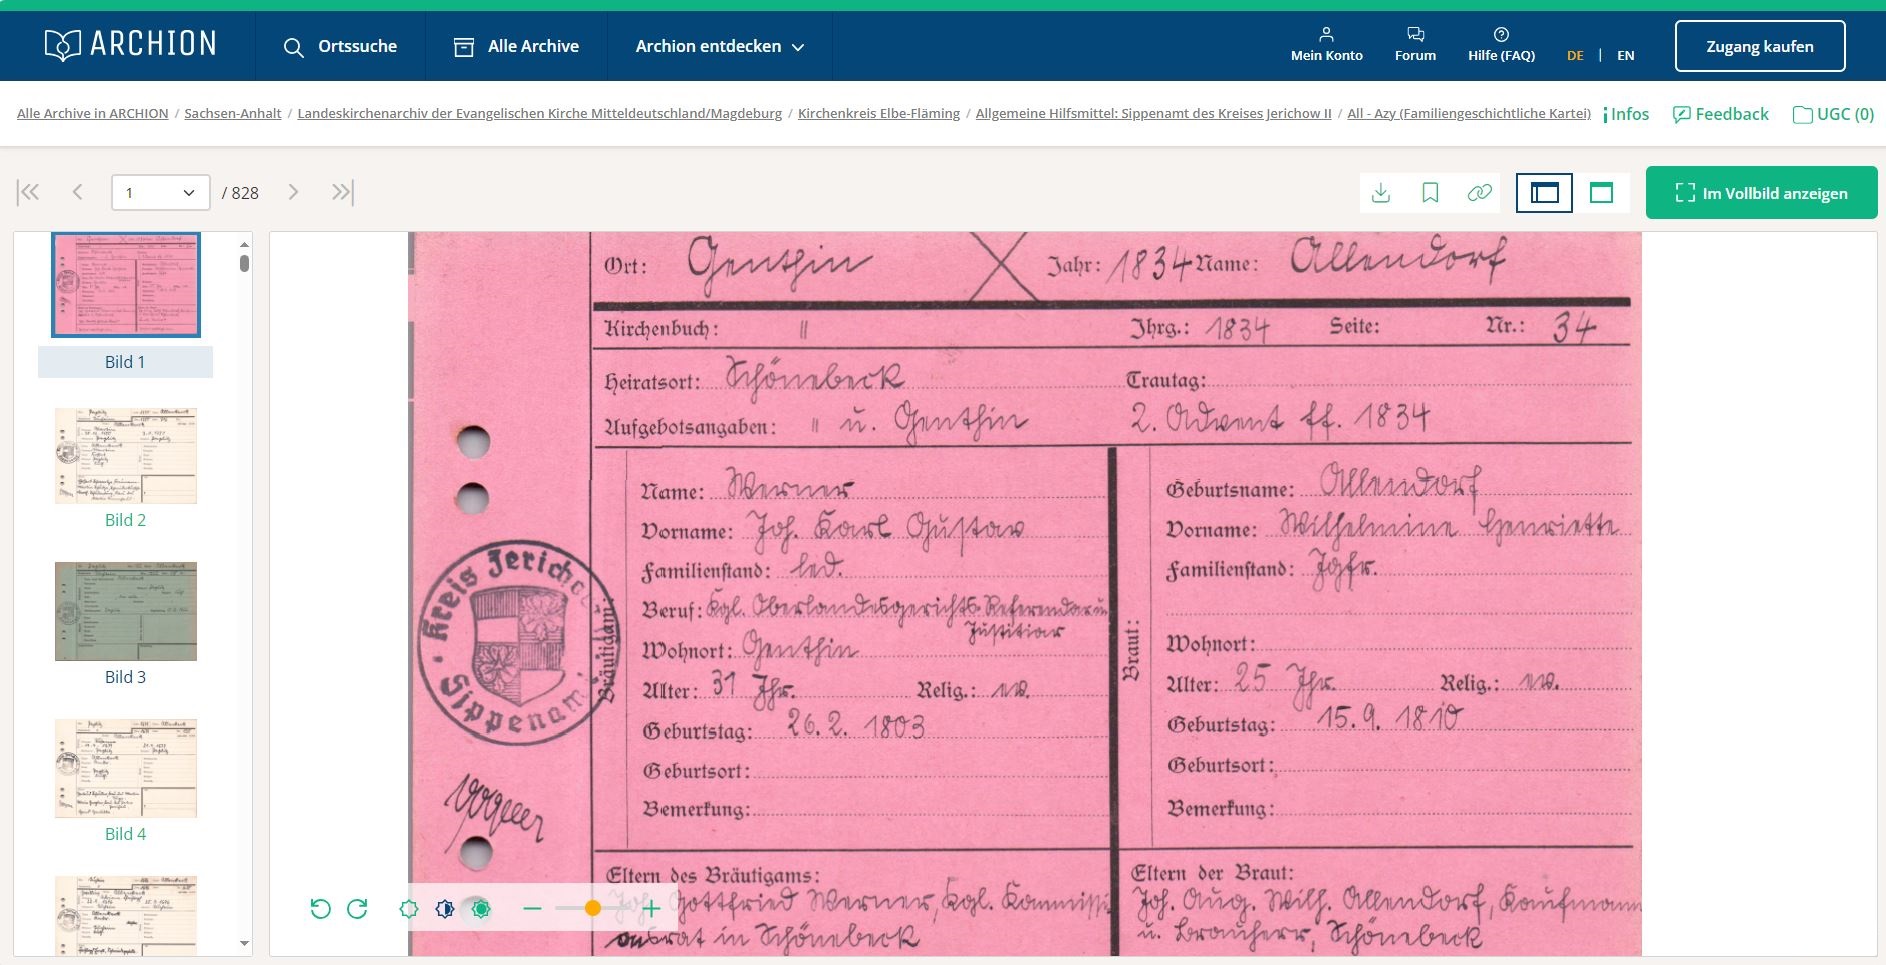 ARCHION
Ortssuche
Alle Archive
Archion entdecken
Mein Konto
Forum
Hilfe (FAQ)
DE | EN
Zugang kaufen
Alle Archive in ARCHION / Sachsen-Anhalt / Landeskirchenarchiv der Evangelischen Kirche Mitteldeutschland/Magdeburg / Kirchenkreis Elbe-Fläming / Allgemeine Hilfsmittel: Sippenamt des Kreises Jerichow II / All - Azy (Familiengeschichtliche Kartei)
Infos
Feedback
UGC (0)
1 / 828
Im Vollbild anzeigen
Bild 1
Bild 2
Bild 3
Bild 4
Ort: Genthin Jahr: 1834 Name: Allendorf
Kirchenbuch: " Jhrg.: 1834 Seite: Nr.: 34
Heiratsort: Schönebeck Trautag:
Aufgebotsangaben: " u. Genthin 2. Advent ff. 1834
Kreis Jericho
Sippenam
Bräutigam:
Name: Werner
Vorname: Joh. Karl Gustav
Familienstand: led.
Beruf: Kgl. Oberlandesgerichts-Referendar u.
Justitiar
Wohnort: Genthin
Alter: 31 Jhr. Relig.: ev.
Geburtstag: 26.2. 1803
Geburtsort:
Bemerkung:
Braut:
Geburtsname: Allendorf
Vorname: Wilhelmine Henriette
Familienstand: Jgfr.
Wohnort:
Alter: 25 Jhr. Relig.: ev.
Geburtstag: 15.9. 1810
Geburtsort:
Bemerkung:
Eltern des Bräutigams:
Joh. Gottfried Werner, Kgl. Kommissi
onsrat in Schönebeck
Eltern der Braut:
Joh. Aug. Wilh. Allendorf, Kaufmann
u. Brauherr, Schönebeck